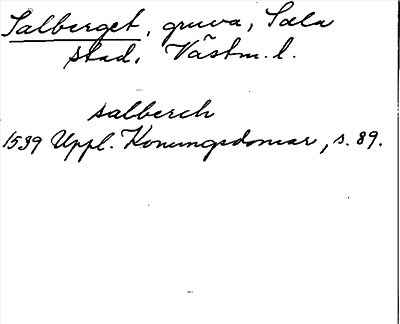 Salberget, gruva, Sala
stad, Västm. l.
salberch
1539 Uppl. Konungsdomar, s. 89.